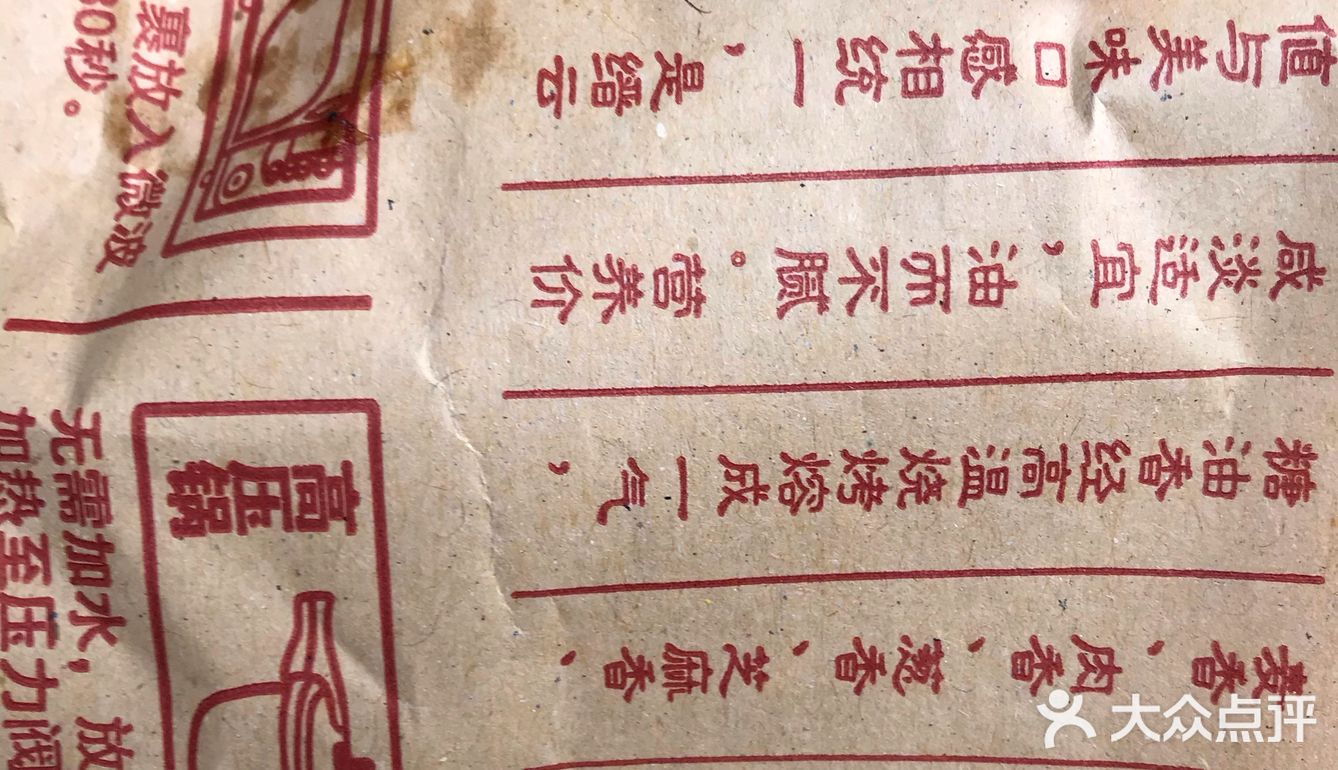 麦香、肉香、葱香、芝麻香、
糖油香经高温烧烤熔成一气，
咸淡适宜，油而不腻。营养价
值与美味口感相统一，是缙云
裹放入微波
30秒。
高压锅
无需加水，放
加热至压力阀
大众点评